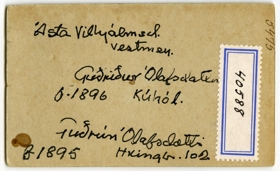 Ásta Vilhjálmsd.
vestmen.
Guðríður Ólafsdóttir
f. 1896 Kúhól.
Guðrún Ólafsdótti
f. 1895 Hringbr. 102
40588